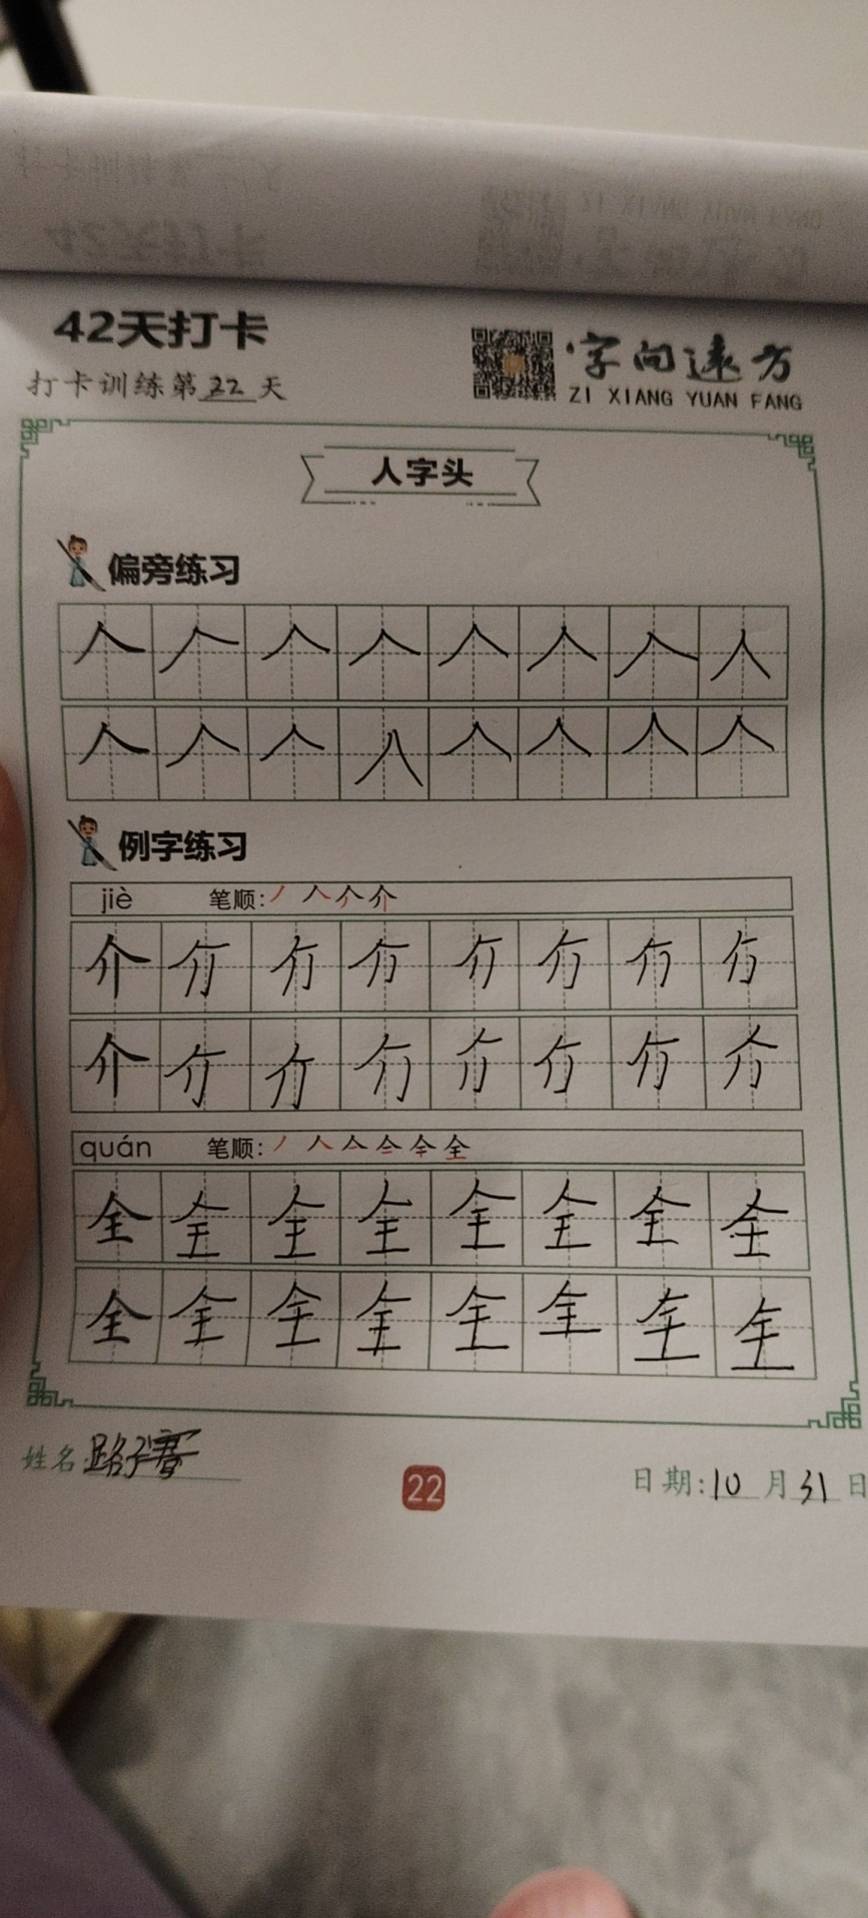 42天打卡
打卡训练第22天
字向远方
ZI XIANG YUAN FANG
人字头
偏旁练习
人人人人人人人人
人人人八人人人人
例字练习
jiè 笔顺:丿 人 介 介
介 介 介 介 介 介 介 介
介 介 介 介 介 介 介 介
quán 笔顺:丿 人 亼 仝 全 全
全 全 全 全 全 全 全 全
全 全 全 全 全 全 全 全
姓名:路子
22
日期:10月31日